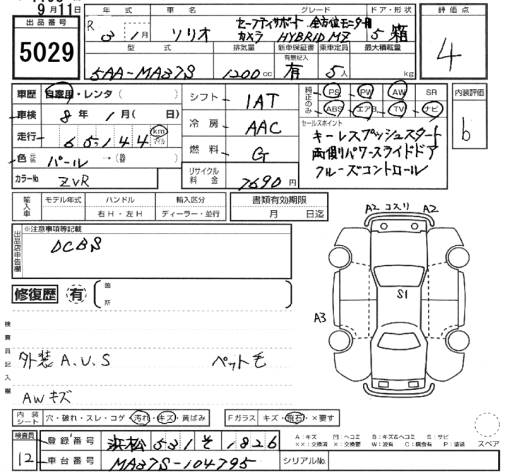 9月11日
出品番号 5029
年式 車名 グレード ドア・形状 評価点
R 3 1月 ソリオ セーフティサポート 全方位モニター用カメラ HYBRID MZ 5 箱 4
型式 排気量 新車保証書 乗車定員 最大積載量
5AA-MA37S 1200cc 有無記入 有 5人 kg
車歴 自家用・レンタ( )
車検 8年 1月( 日)
走行 65,144 km マイル
色 パール →(色替)
カラーNo ZVR
シフト 1AT
冷房 AAC
燃料 G
リサイクル料金 7690円
純正のみ PS PW AW SR
ABS エアB TV ナビ
内装評価 b
セールスポイント
キーレスプッシュスタート
両側パワースライドドア
クルーズコントロール
輸入車 モデル年式 ハンドル 右H・左H 輸入区分 ディーラー・並行
書類有効期限 月 日迄
出品店申告欄 ※注意事項等記載
DCBS
修復歴 有 箇所
A2 コスリ A2
S1
A3
検査員記入欄
外装 A.U.S ペット毛
AWキズ
内装シート 穴・破れ・スレ・コゲ・汚れ・キズ・黄ばみ
Fガラス キズ・飛石・×要す
検査員 12
登録番号 浜松 531 そ 1826
車台番号 MA37S-104795
シリアルNo.
A:キズ U:ヘコミ B:キズ&ヘコミ S:サビ
XX:交換済 X:要交換 W:波 C:腐食 P:塗装
スペア